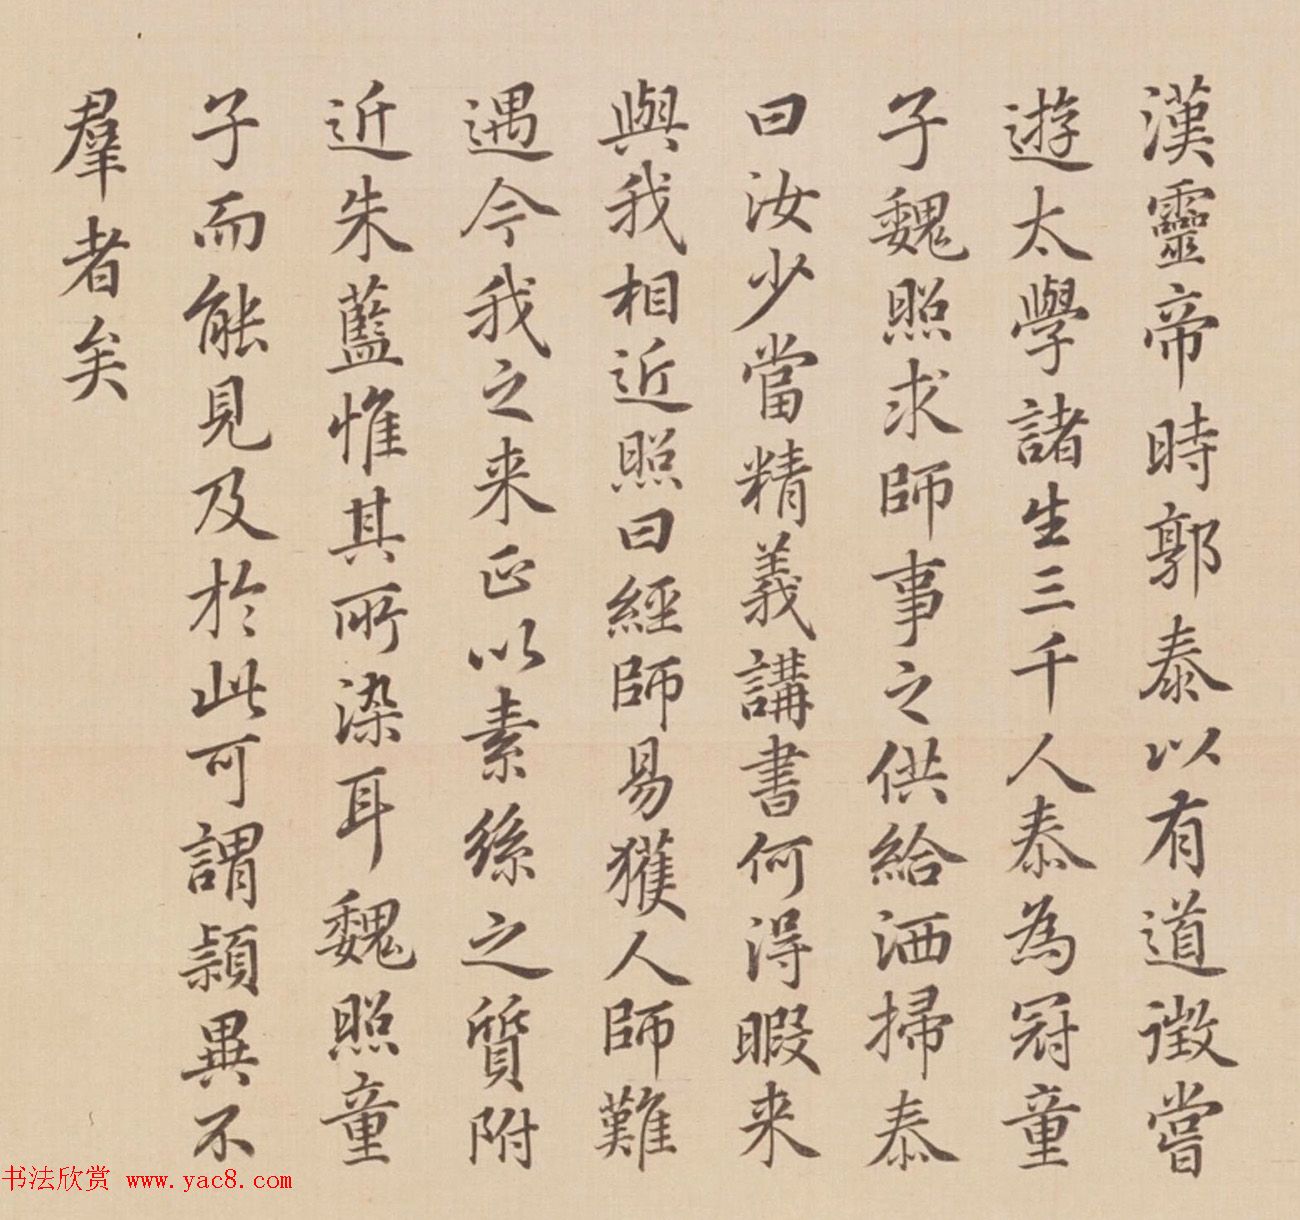 漢靈帝時郭泰以有道徵嘗
遊太學諸生三千人泰為冠童
子魏照求師事之供給洒掃泰
曰汝少當精義講書何得暇来
與我相近照曰經師易獲人師難
遇今我之来正以素絲之質附
近朱藍惟其所染耳魏照童
子而能見及於此可謂穎異不
羣者矣
书法欣赏 www.yac8.com